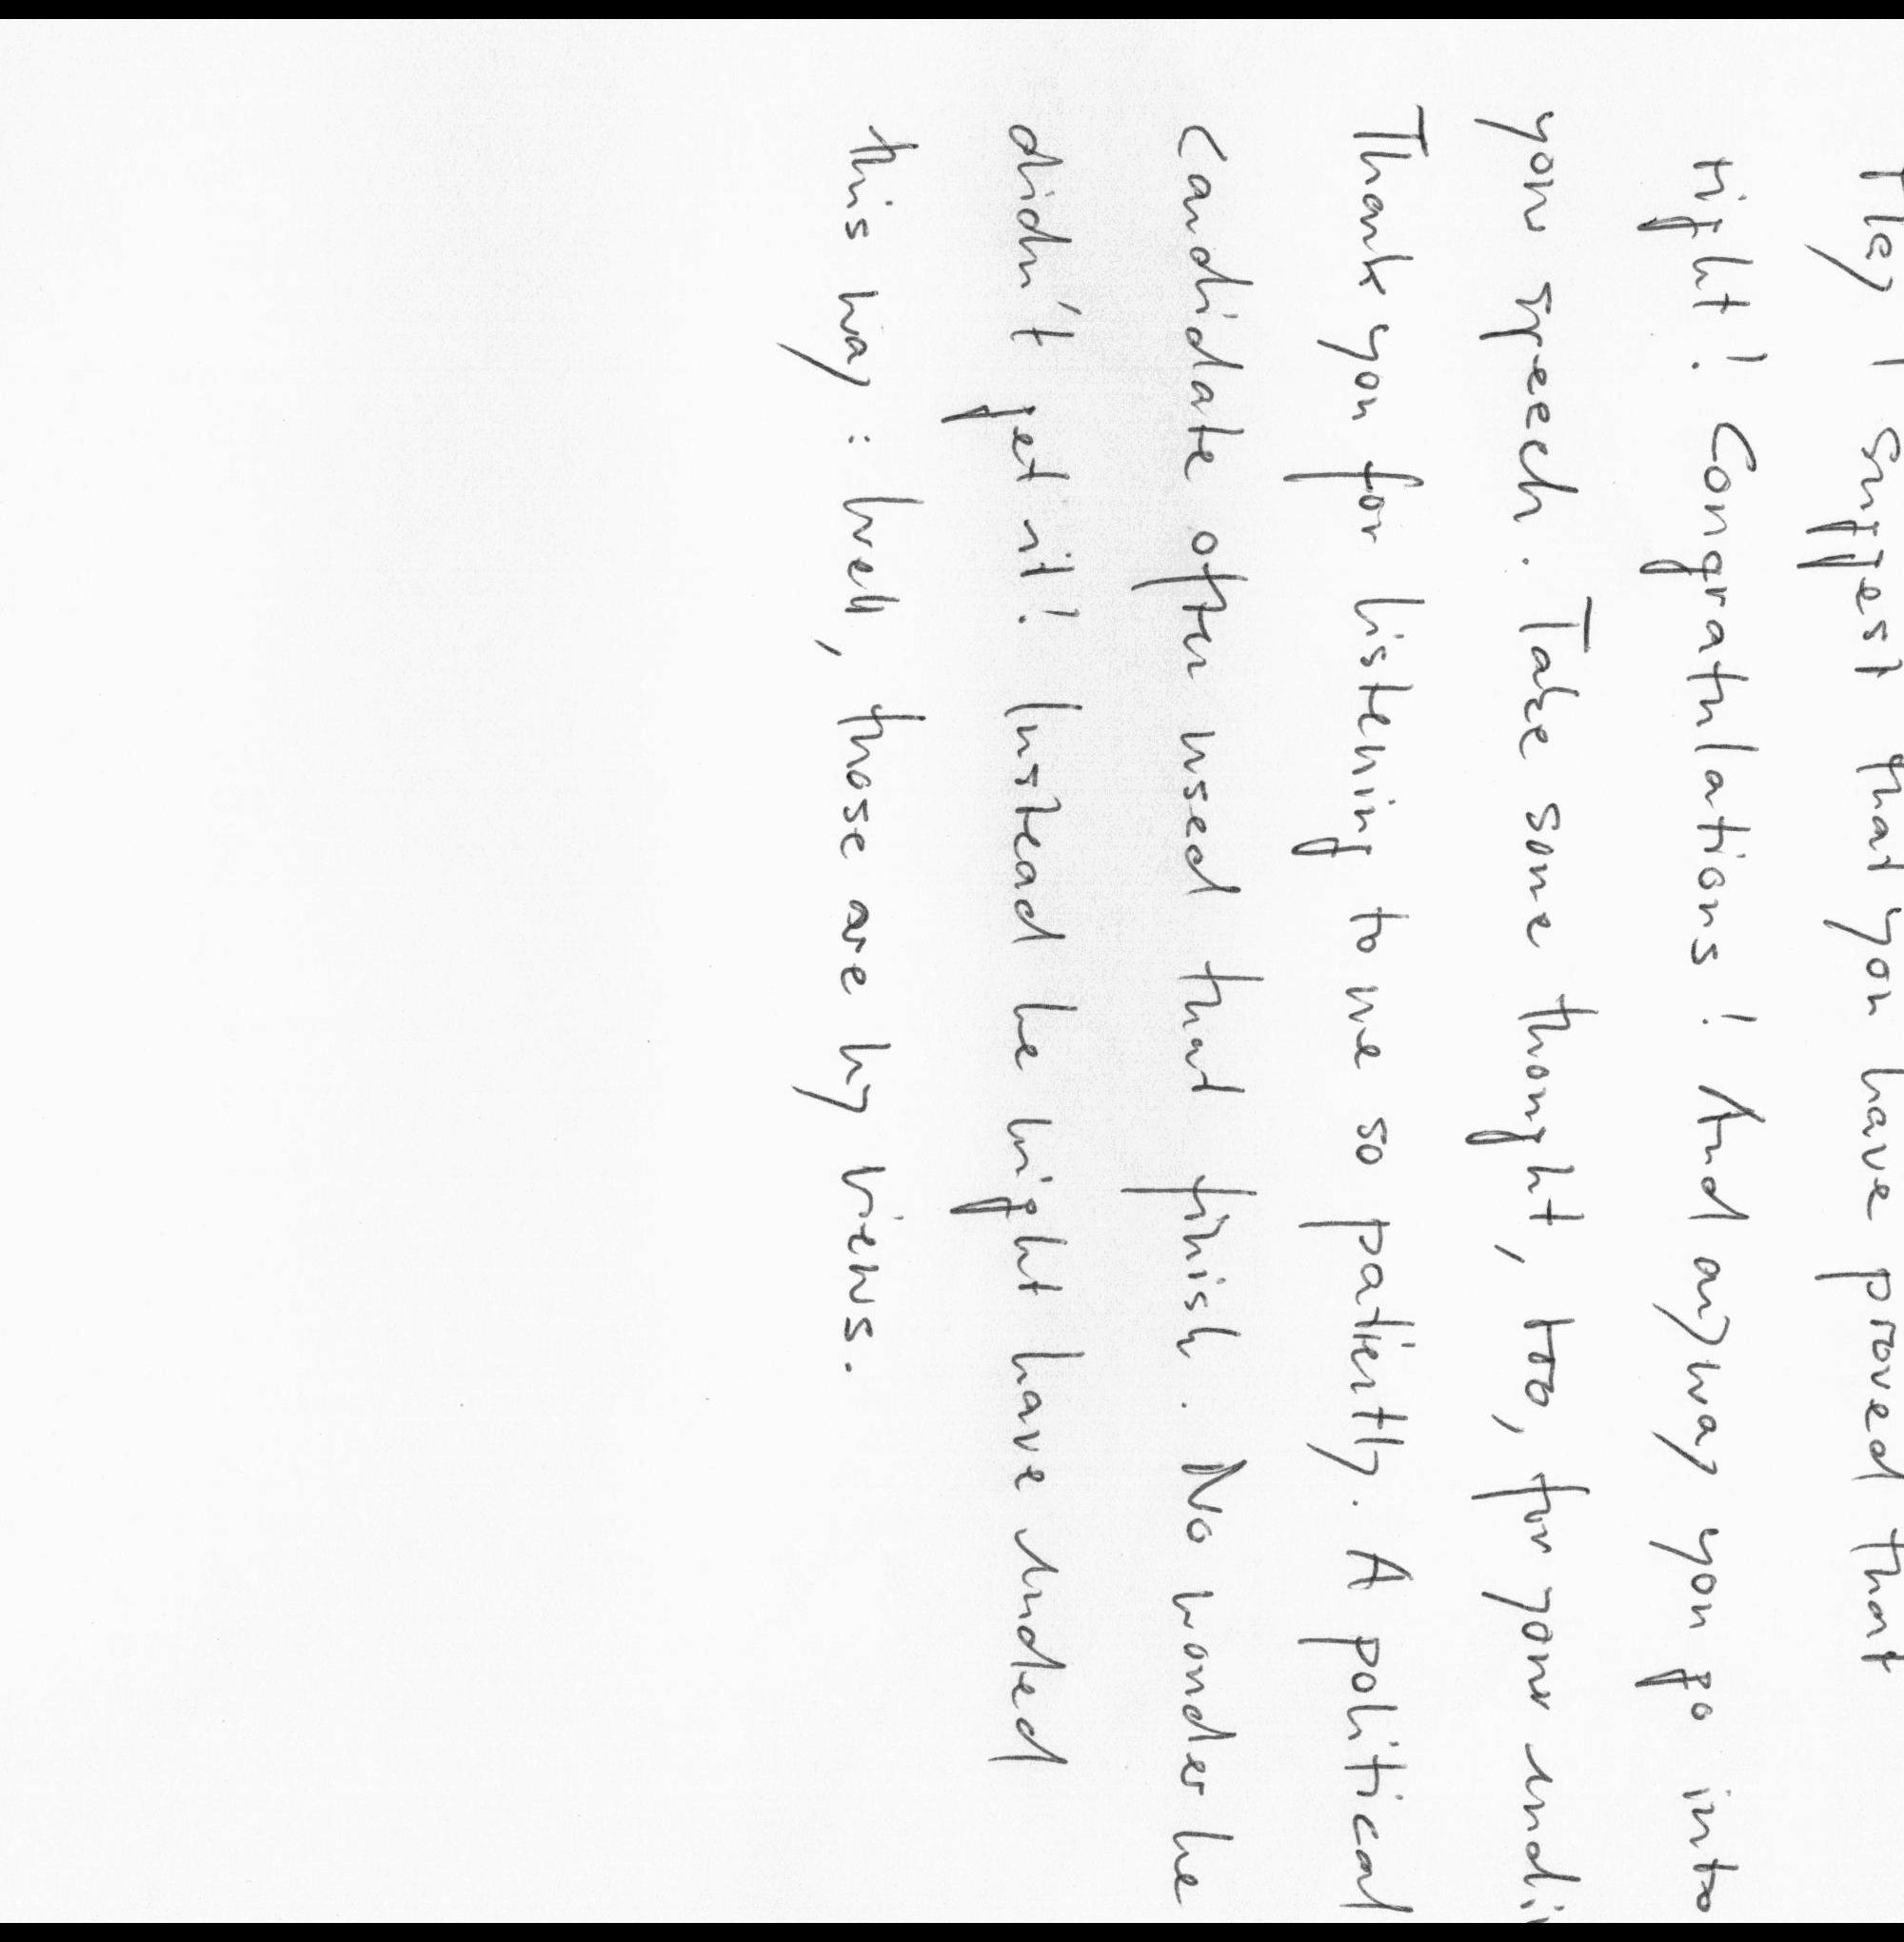 May I suggest that you have proved that
right! Congratulations! And anyway you go into
your speech. Take some thought, too, for your
Thank you for listening to me so patiently. A political
candidate often used that finish. No wonder he
didn't get it! Instead he might have ended
this way: Well, those are my views.